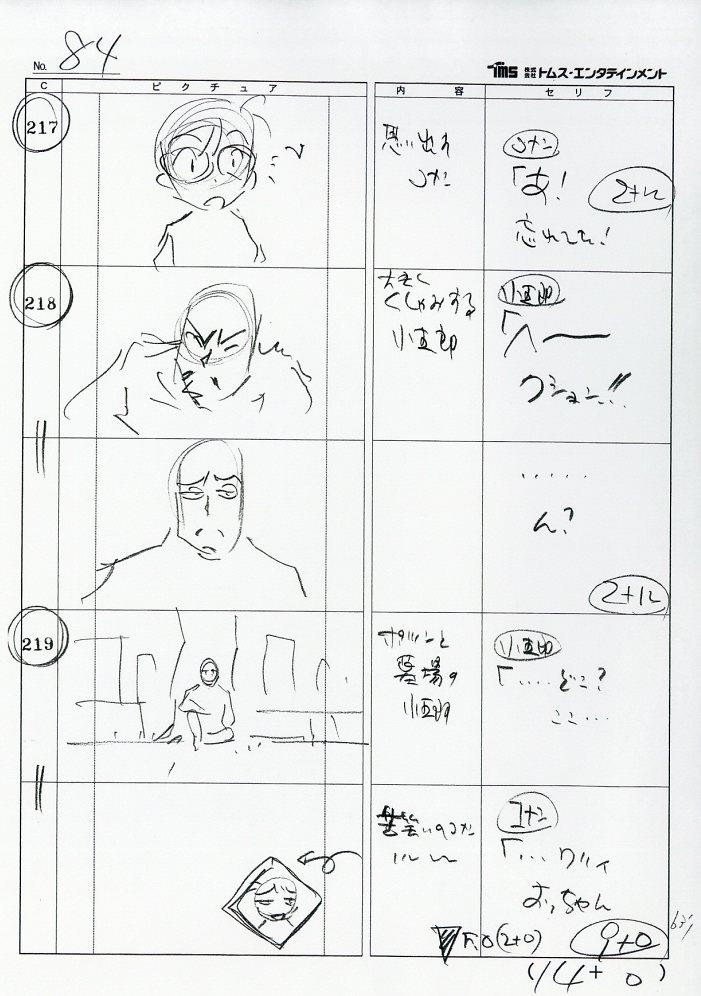 No. 84
TMS 株式会社 トムス・エンタテインメント
C ピクチュア 内容 セリフ
217
思い出す
コナン
コナン
「あ!
忘れてた!
2+12
218
大きく
くしゃみする
小五郎
小五郎
「ヘー
クション!!
‥‥‥
ん?
2+12
219
ポツンと
墓場の
小五郎
小五郎
「‥‥どこ?
ここ‥‥
苦笑いのコナン
コナン
「‥‥ワリィ
おっちゃん
F.O(2+0)
9+0
(14+0)